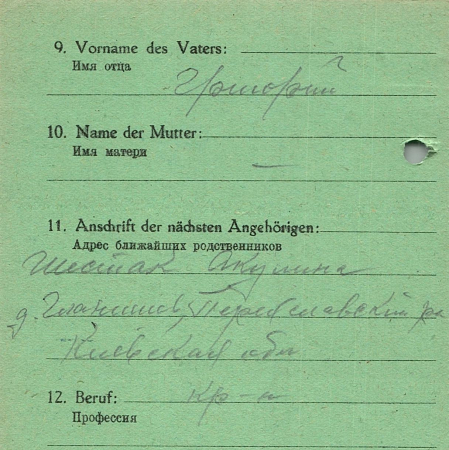 9. Vorname des Vaters:
Имя отца
Григорий
10. Name der Mutter:
Имя матери
—
11. Anschrift der nächsten Angehörigen:
Адрес ближайших родственников
Шестак Акулина
д. Переяславский р
Киевская обл
12. Beruf: кр-н
Профессия